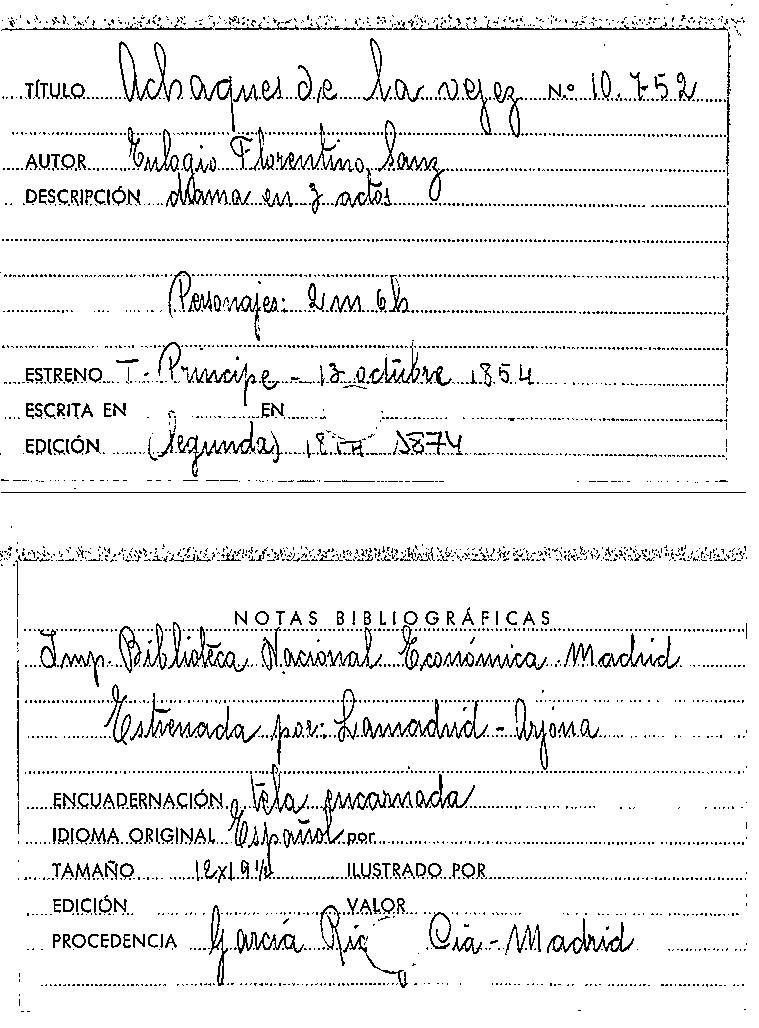 TÍTULO Achaques de la vejez N.º 10.752
AUTOR Eulogio Florentino Sanz
DESCRIPCIÓN drama en 3 actos
Personajes: 2 m 6 h
ESTRENO T. Principe - 13 octubre 1854
ESCRITA EN EN
EDICIÓN (Segunda) 1874
NOTAS BIBLIOGRÁFICAS
Imp. Biblioteca Nacional Económica. Madrid
Estrenada por: Lamadrid - Arjona
ENCUADERNACIÓN tela encarnada
IDIOMA ORIGINAL Español por
TAMAÑO 12x19½ ILUSTRADO POR
EDICIÓN VALOR
PROCEDENCIA García Rico Cia - Madrid